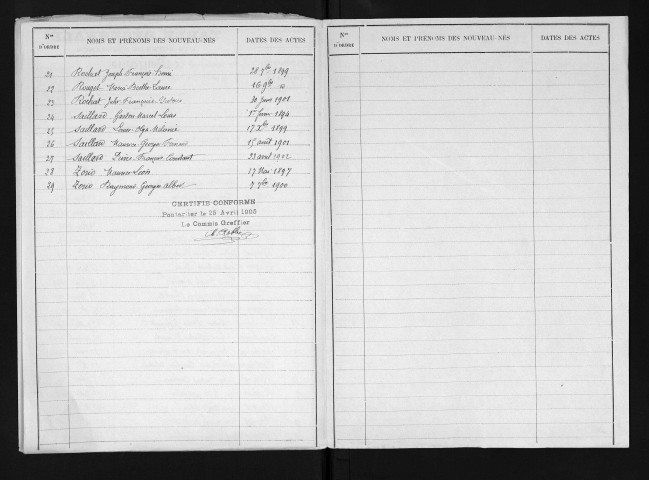 Nos D'ORDRE NOMS ET PRÉNOMS DES NOUVEAU-NÉS DATES DES ACTES
21 Rochat Joseph François 28 7bre 1899
22 Rouget Maria Berthe Laure 16 9bre
23 Rochat Jules François 30 Juin 1901
24 Saillard Gaston Marcel Louis 1er Juin 1894
25 Saillard Olga 17 Xbre 1899
26 Saillard Maurice Georges 15 août 1901
27 Saillard Pierre François Constant 23 avril 1902
28 Maurice Léon 17 Mai 1897
29 Raymond Georges Albert 7 7bre 1900
CERTIFIE CONFORME
Pontarlier le 25 Avril 1903
Le Commis Greffier
Nos D'ORDRE NOMS ET PRÉNOMS DES NOUVEAU-NÉS DATES DES ACTES